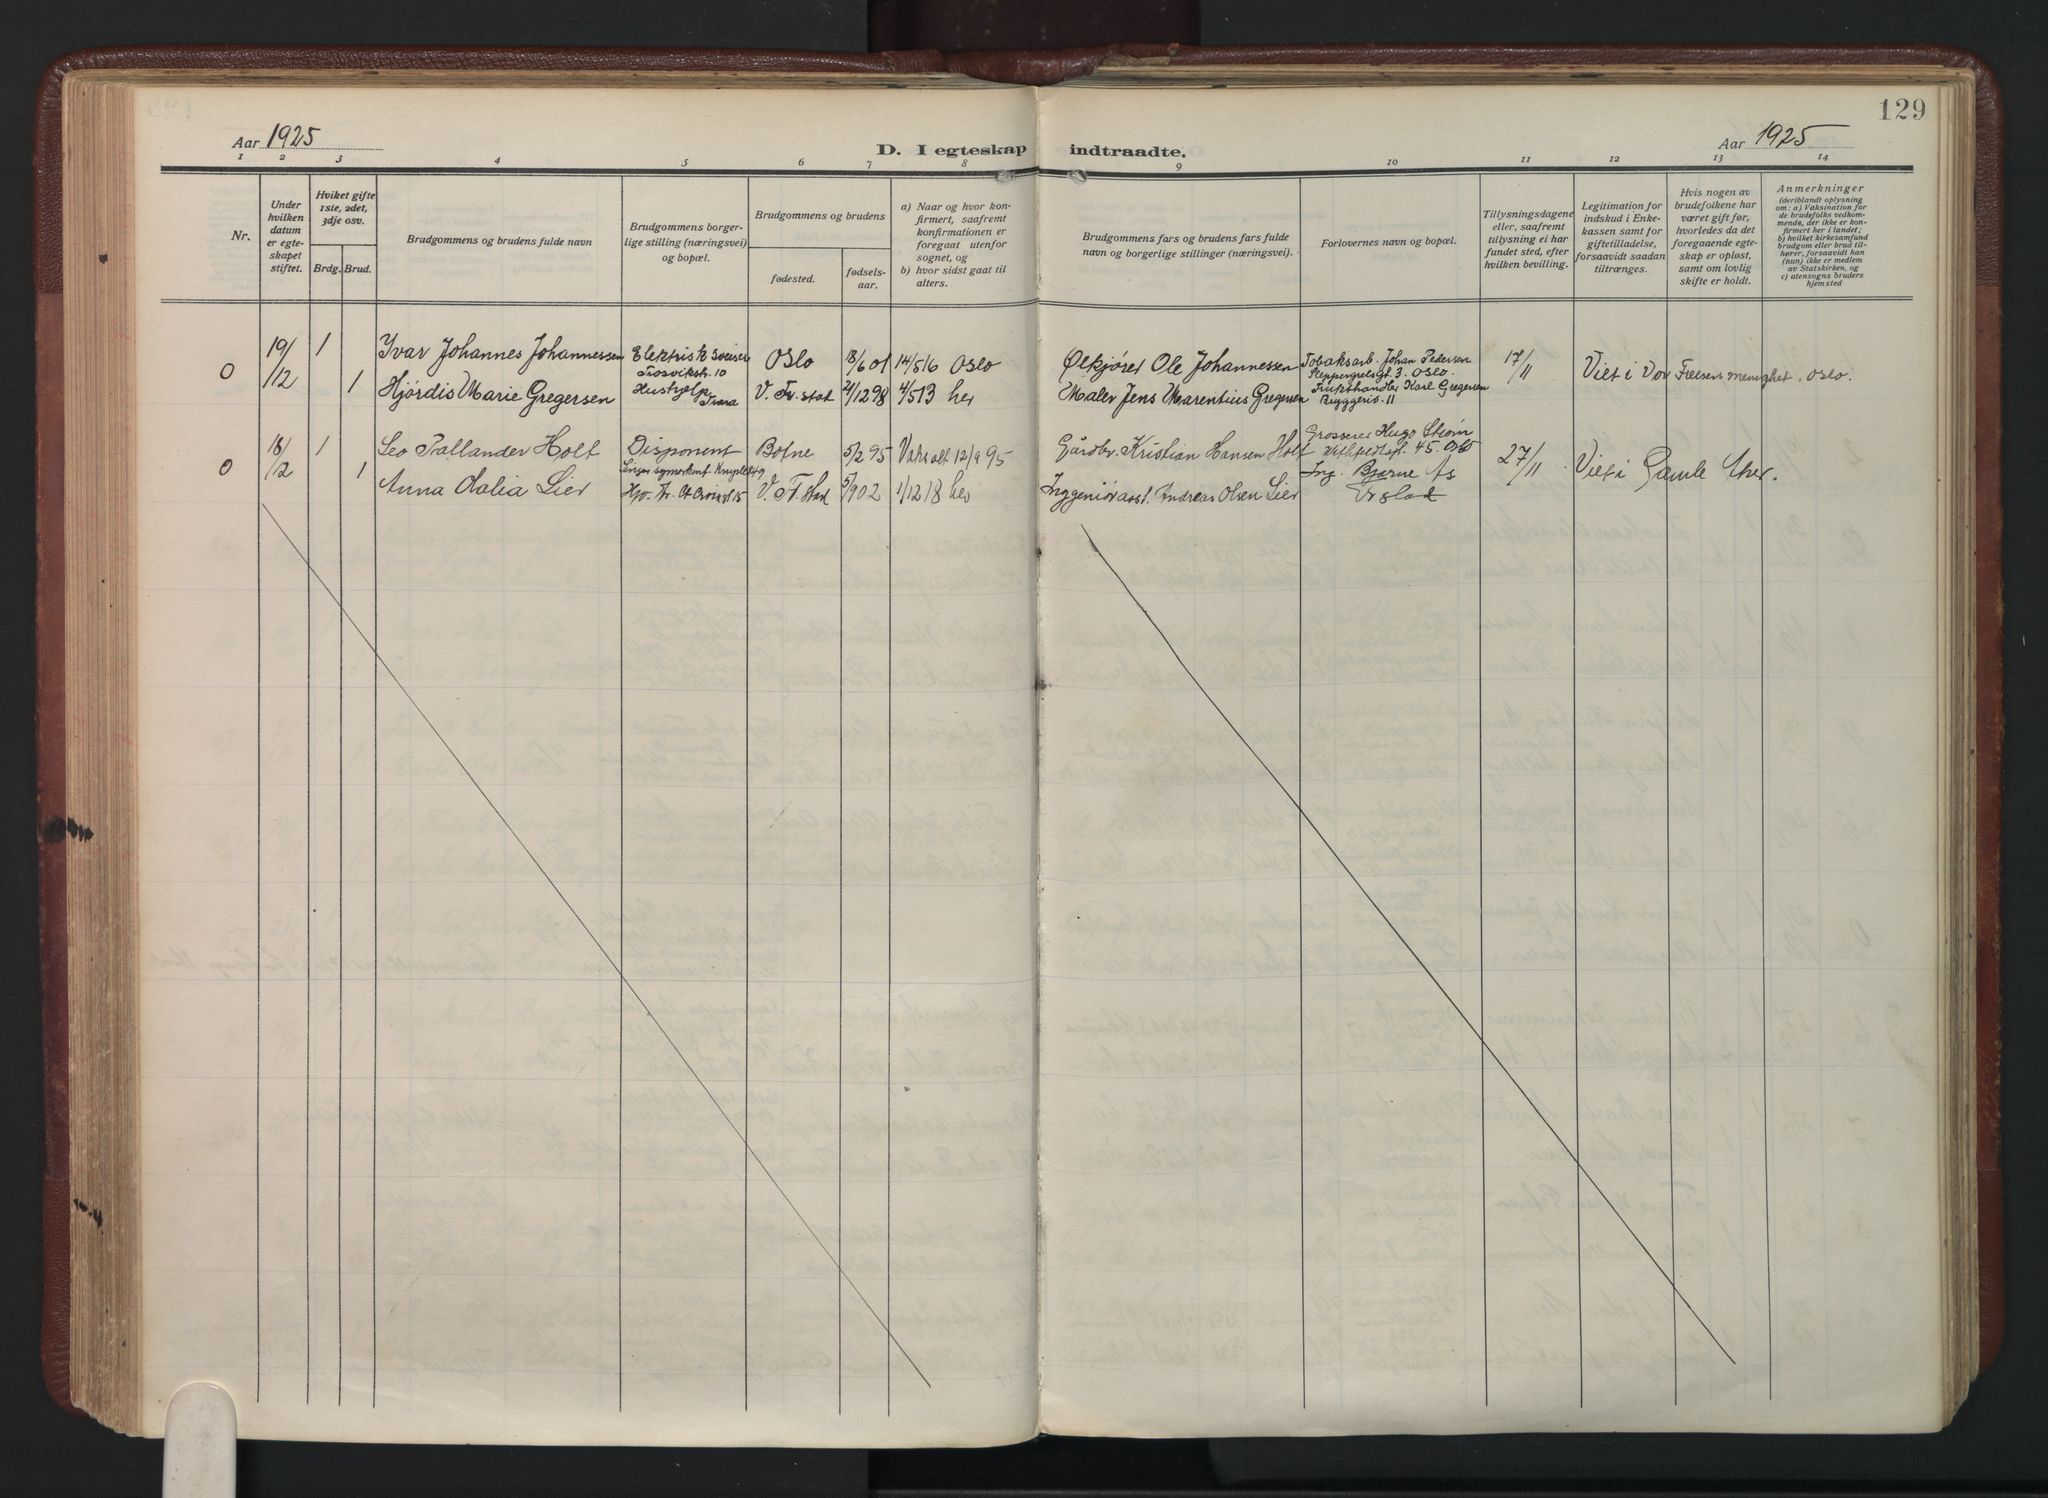 129
Aar 1925
D. I egteskap indtraadte.
Aar 1925
1 2 3 4 5 6 7 8 9 10 11 12 13 14
Nr.
Under hvilken datum er egteskapet stiftet.
Hviket gifte 1ste, 2det, 3dje osv.
Brdg. Brud.
Brudgommens og brudens fulde navn
Brudgommens borgerlige stilling (næringsvei) og bopæl.
Brudgommens og brudens
fødested.
fødselsaar.
a) Naar og hvor konfirmert, saafremt konfirmationen er foregaat utenfor sognet, og
b) hvor sidst gaat til alters.
Brudgommens fars og brudens fars fulde navn og borgerlige stillinger (næringsvei).
Forlovernes navn og bopæl.
Tillysningsdagene eller, saafremt tillysning ei har fundet sted, efter hvilken bevilling.
Legitimation for indskud i Enkekassen samt for giftetilladelse, forsaavidt saadan tiltrænges.
Hvis nogen av brudefolkene har været gift før, hvorledes da det foregaaende egteskap er opløst, samt om lovlig skifte er holdt.
Anmerkninger
(deriblandt oplysning om: a) Vaksination for de brudefolks vedkommende, der ikke er konfirmert her i landet; b) hvilket kirkesamfund brudgom eller brud tilhører, forsaavidt han (hun) ikke er medlem av Statskirken, og c) utensogns bruders hjemsted
0 19/12 1 Yvar Johannes Johannessen Elektrisk sveiser Trosvikstr. 10 Oslo 18/6 01 14/5 16 Oslo Ølkjører Ole Johannessen Tobaksarb. Johan Pedersen 3. Oslo. 17/11 Viet i Vor Frelsers menighet, Oslo.
1 Hjørdis Marie Gregersen Hushjelp V. Fr.stad 21/12 98 4/5 13 her Maler Jens Marentius Gregersen Frukthandler Karl Gregersen Bryggeris. 11
0 18/12 1 Leo Pallander Holt Disponent Botne 5/2 95 12/9 95 Gårdbr. Kristian Hansen Holt Grosserer Hugo Strøm 45. Oslo 27/11 Viet i Gamle Aker.
1 Anna Dalia Lier V. Fr. stad 5/ 902 1/12 18 her Ingeniørasst. Andreas Olsen Lier Ing. Bjarne As